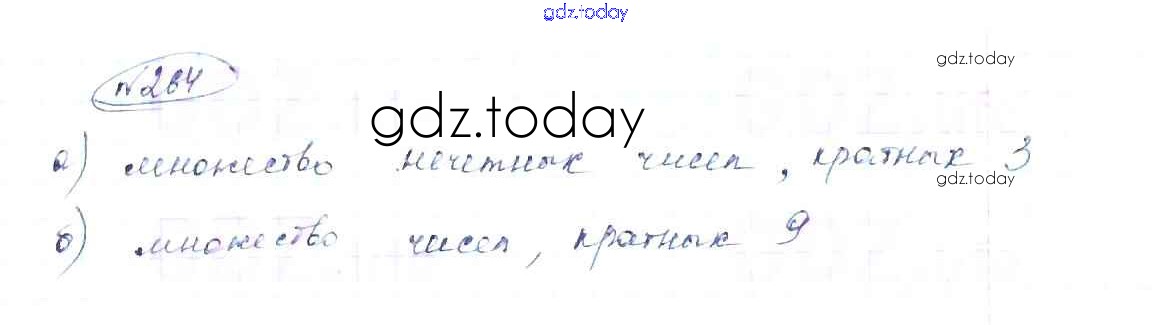 gdz.today
gdz.today
№264
gdz.today
а) множество нечетных чисел, кратных 3
gdz.today
б) множество чисел, кратных 9